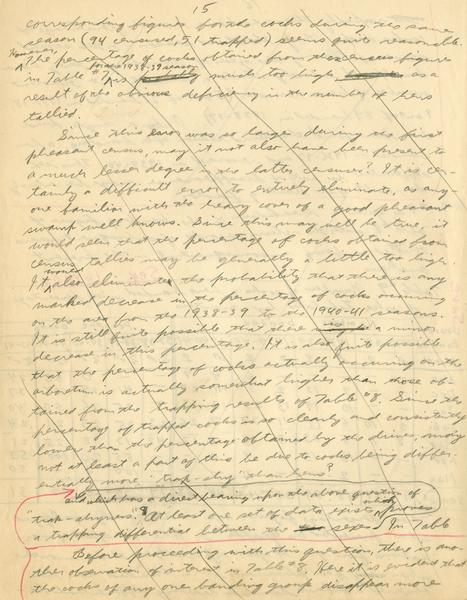 15
corresponding figures for the cocks during the same
season (94 censused, 51 trapped) seems quite reasonable.
However, The percentage of cocks obtained from the census figures
in Table #7 for the 1938-39 season is much too high as a
result of the obvious deficiency in the number of hens
tallied.
Since this error was so large during the first
pheasant census, may it not also have been present to
a much lesser degree in the latter censuses? It is cer-
tainly a difficult error to entirely eliminate, as any-
one familiar with the heavy cover of a good pheasant
swamp well knows. Since this may well be true, it
would seem that the percentage of cocks obtained from
census tallies may be generally a little too high.
It would also eliminate the probability that there is any
marked decrease in the percentage of cocks occurring
on the area from the 1938-39 to the 1940-41 seasons.
It is still quite possible that there is a minor
decrease in this percentage. It is also quite possible
that the percentage of cocks actually occurring on the
arboretum is actually somewhat higher than those ob-
tained from the trapping results of Table #8. Since the
percentage of trapped cocks is so clearly and consistently
lower than the percentage obtained by the drives, may
not at least a part of this be due to cocks being differ-
entially more "trap-shy" than hens?
and which has a direct bearing upon the above question of
"trap-shyness". At least one set of data exist which
a trapping differential between the sexes. In Table
Before proceeding with this question, there is ano-
ther observation of interest in Table #8. Here it is evident that
the cocks of any one banding group disappear more